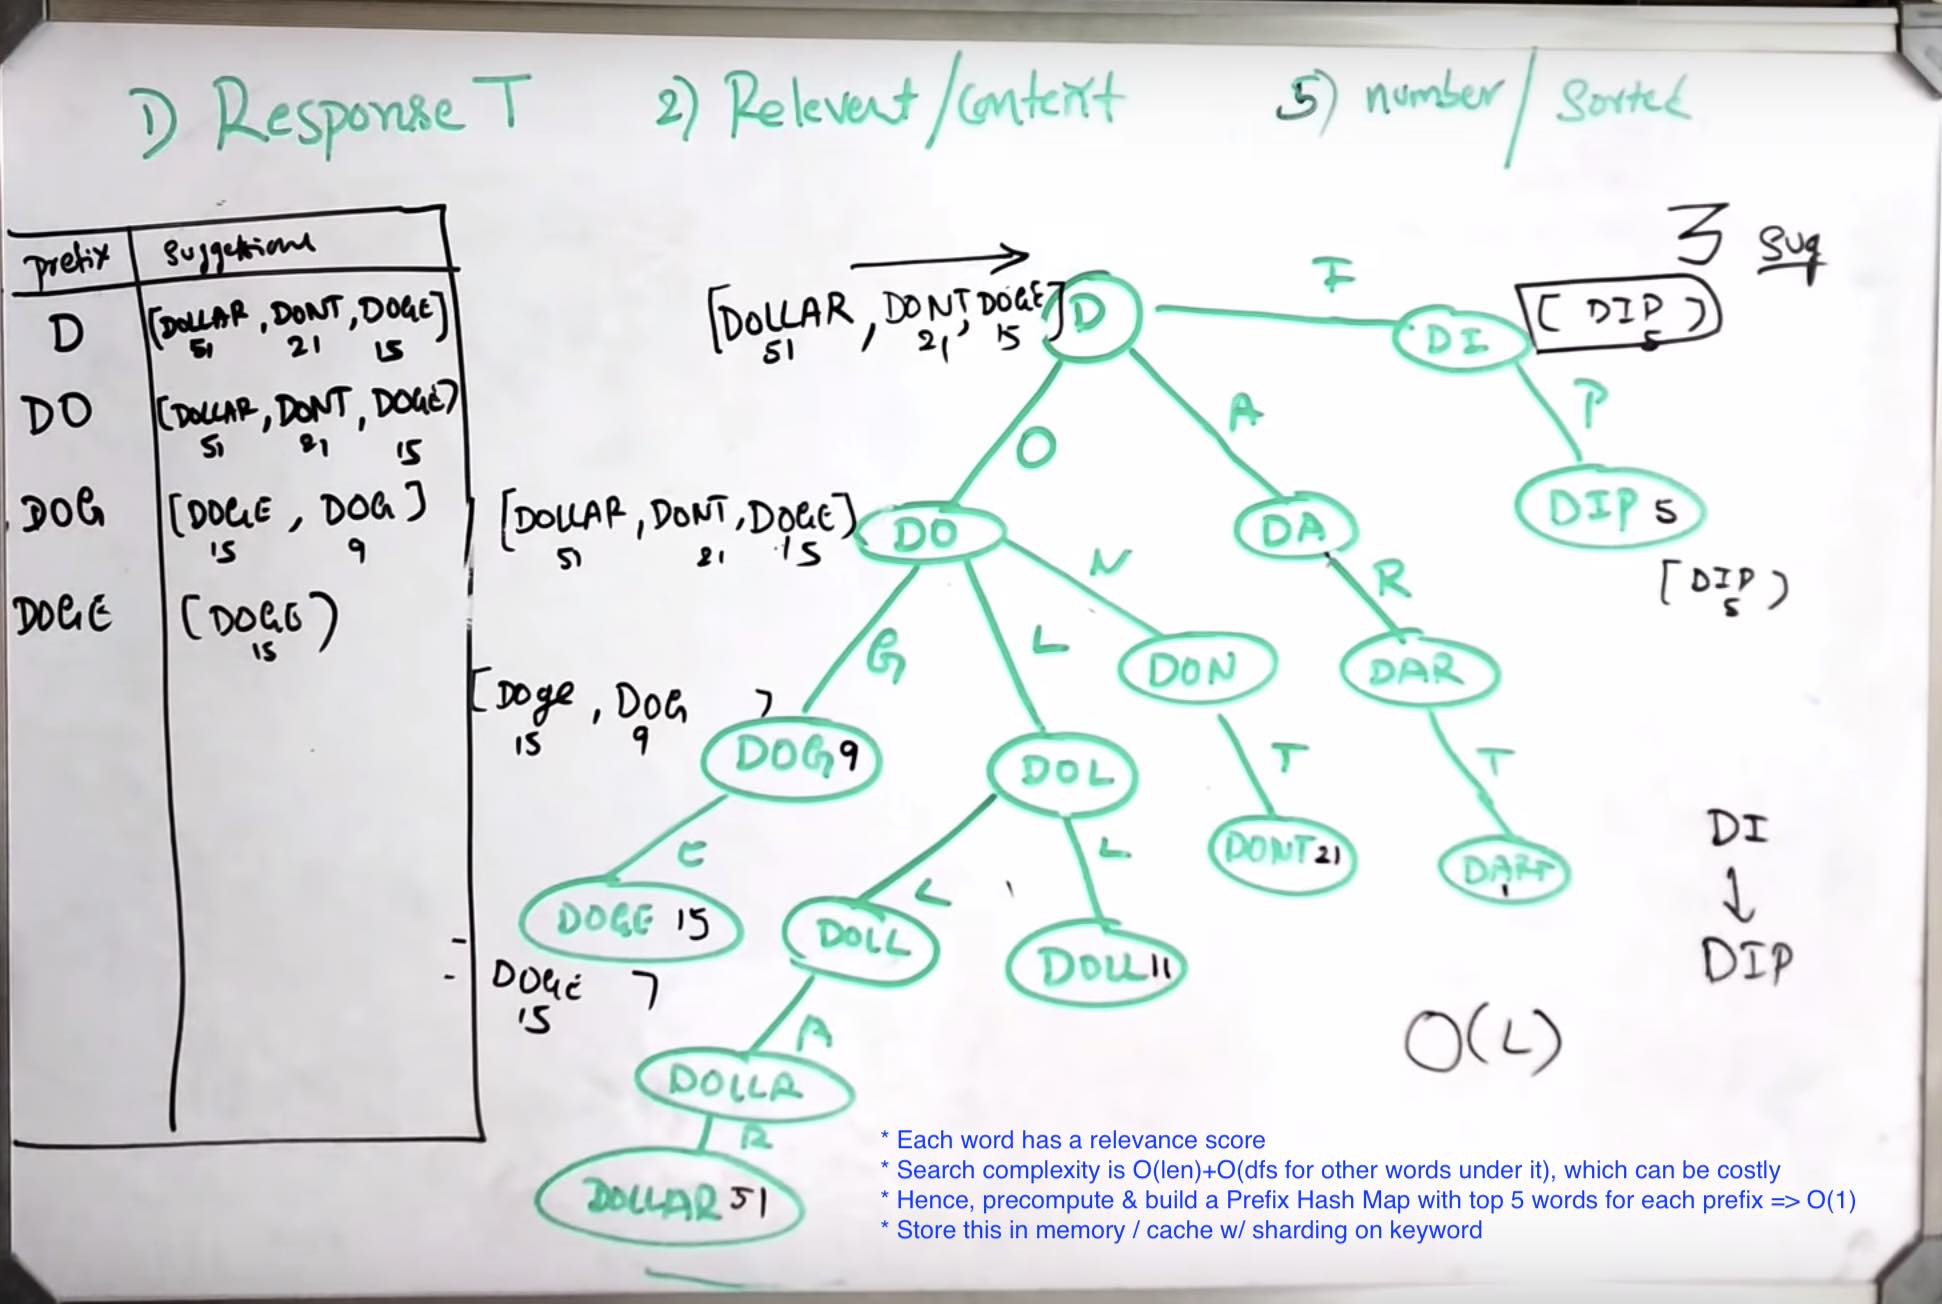 1) Response T 2) Relevent/context 5) number/ Sorted
3 Sug
prefix suggestions
D [DOLLAR, DONT, DOGE]
51 21 15
DO [DOLLAR, DONT, DOGE]
51 21 15
DOG [DOGE, DOG]
15 9
DOGE [DOGE]
15
[DOLLAR, DONT, DOGE] D I DI [DIP]
51 21, 15 5
O A P
[DOLLAR, DONT, DOGE] DO DA DIP 5
51 21 15
[DIP]
5
G L N R
[Doge, DOG ] DON DAR
15 9
DOG 9 DOL T T
E L L DONT 21 DART
1
DOGE 15 DOLL DOLL 11
DOGE ]
15
DI
↓
DIP
A
O(L)
DOLLA
R
DOLLAR 51
* Each word has a relevance score
* Search complexity is O(len)+O(dfs for other words under it), which can be costly
* Hence, precompute & build a Prefix Hash Map with top 5 words for each prefix => O(1)
* Store this in memory / cache w/ sharding on keyword